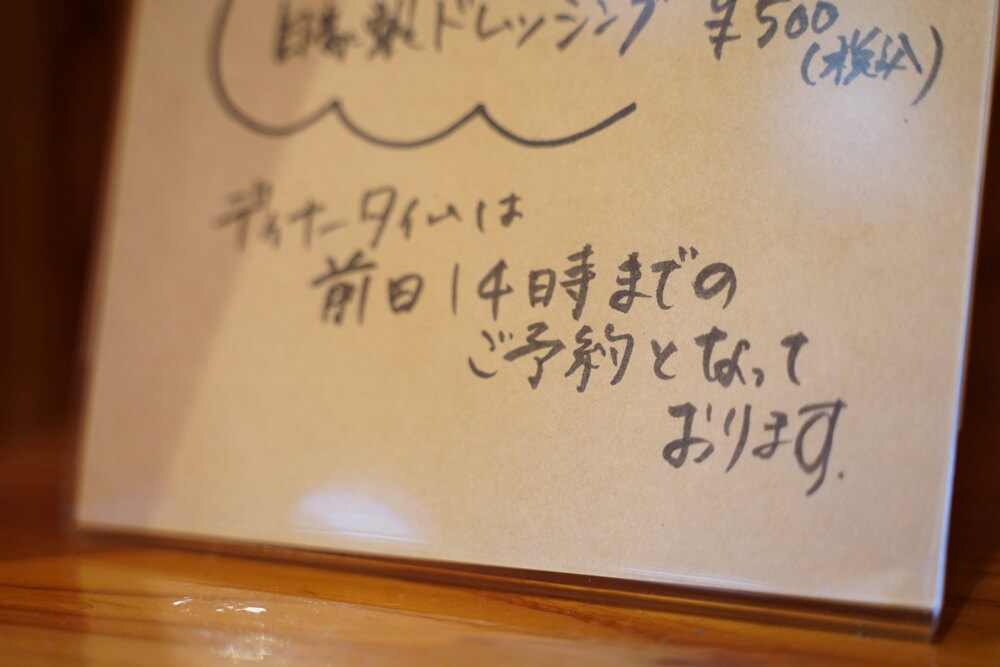 自家製ドレッシング ¥500
(税込)
ディナータイムは
前日14時までの
ご予約となって
おります.